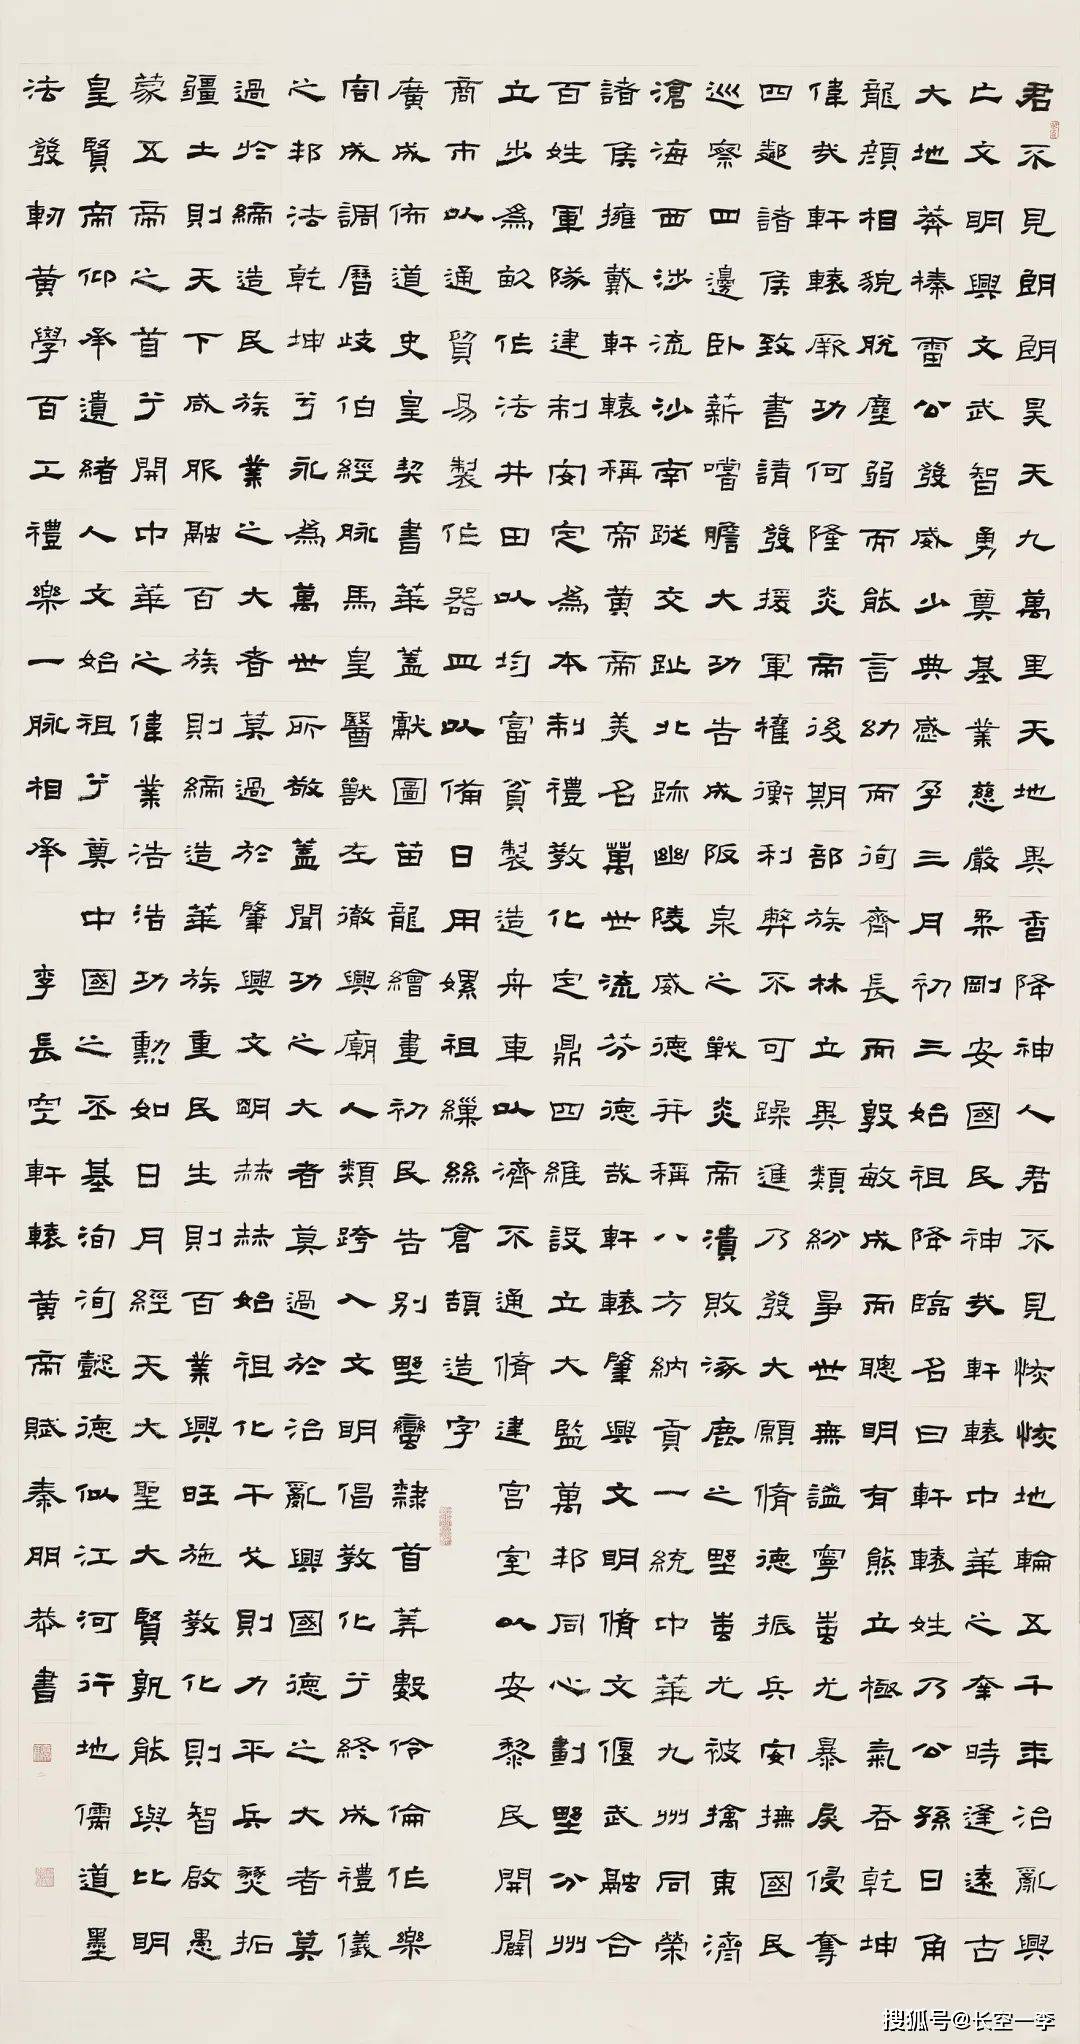 君不見朗朗昊天九萬里天地異香降神人君不見恢恢地輪五千年治亂興
亡文明興文武智勇奠基業慈嚴柔剛安國民神哉軒轅中華之奎時逢遠古
大地莽榛雷公發威少典感孕三月初三始祖降臨名曰軒轅姓乃公孫日角
龍顏相貌脫塵弱而能言幼而徇齊長而敦敏成而聰明有熊立極氣吞乾坤
偉哉軒轅厥功何隆炎帝後期部族林立異類紛爭世無謐寧蚩尤暴戾侵奪
四鄰諸侯致書請發援軍權衡利弊不可躁進乃發大願脩德振兵安撫國民
巡察四邊臥薪嚐膽大功告成阪泉之戰炎帝潰敗涿鹿之野蚩尤被擒東濟
滄海西涉流沙南蹤交趾北跡幽陵威德并稱八方納貢一統中華九州同榮
諸侯擁戴軒轅稱帝黃帝美名萬世流芬德哉軒轅肇興文明脩文偃武融合
百姓軍隊建制安定為本制禮教化定鼎四維設立大監萬邦同心劃野分州
立步為畝作法井田以均富貧製造舟車以濟不通脩建宮室以安黎民開闢
商市以通貿易製作器皿以備日用嫘祖繅絲倉頡造字
廣成佈道史皇契書華蓋獻圖苗龍繪畫初民告別野蠻隸首算數伶倫作樂
容成調曆歧伯經脉馬皇醫獸左徹興廟人類跨入文明倡教化兮終成禮儀
之邦法乾坤兮永為萬世所敬蓋聞功之大者莫過於治亂興國德之大者莫
過於締造民族業之大者莫過於肇興文明赫赫始祖化干戈則力平兵燹拓
疆土則天下咸服融百族則締造華族重民生則百業興旺施教化則智啟愚
蒙五帝之首兮開中華之偉業浩浩功勳如日月經天大聖大賢孰能與比明
皇賢帝仰承遺緒人文始祖兮奠中國之丕基洵洵懿德似江河行地儒道墨
法發軔黃學百工禮樂一脉相承 李長空軒轅黃帝賦泰朋恭書
搜狐号@长空一李